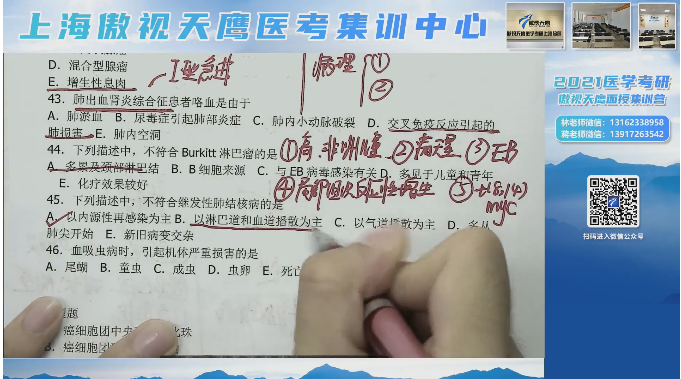 上海傲视天鹰医考集训中心
D. 混合型腺瘤
E. 增生性息肉
I型急进
病理
①
②
43. 肺出血肾炎综合征患者咯血是由于
A. 肺淤血 B. 尿毒症引起肺部炎症 C. 肺内小动脉破裂 D. 交叉免疫反应引起的
肺损害 E. 肺内空洞
44. 下列描述中，不符合 Burkitt 淋巴瘤的是
①
②
③EB
A. 多累及颈部淋巴结 B. B 细胞来源 C. 与 EB 病毒感染有关 D. 多见于儿童和青年
E. 化疗效果较好
④
⑤t(8;14)
myc
45. 下列描述中，不符合继发性肺结核病的是
A. 以内源性再感染为主 B. 以淋巴道和血道播散为主 C. 以气道播散为主 D. 多从
肺尖开始 E. 新旧病变交杂
46. 血吸虫病时，引起机体严重损害的是
A. 尾蚴 B. 童虫 C. 成虫 D. 虫卵 E. 死亡
题
癌细胞团中央
B. 癌细胞团
2021医学考研
傲视天鹰面授集训营
林老师微信：13162338958
蒋老师微信：13917263542
扫码进入微信公众号